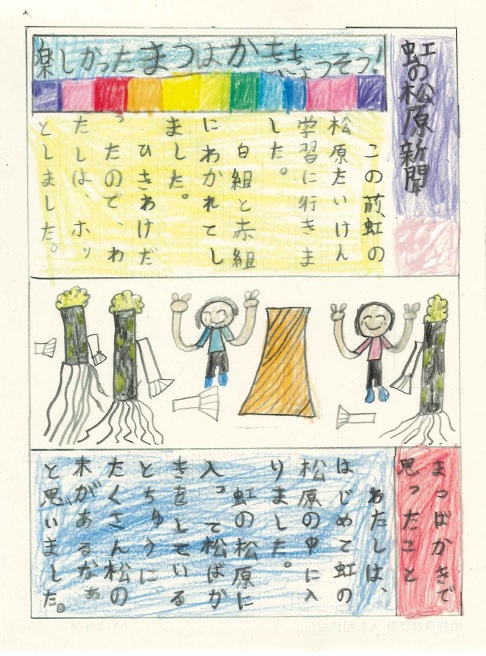 虹の松原新聞
楽しかったまつばかききょうそう!
この前虹の
松原たいけん
学習に行きま
した。
白組と赤組
にわかれてし
ました。
ひきわけだ
ったので、わ
たしは、ホッ
としました。
まつばかきで
思ったこと
わたしは、
はじめて虹の
松原の中に入
りました。
虹の松原に
入って松ばか
きをしている
とちゅうに、
たくさん松の
木があるなぁ
と思いました。